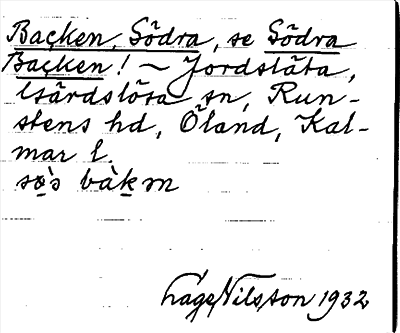 Backen, Södra, se Södra
Backen! ~ Jordsläta,
Gärdslösa sn, Run-
stens hd, Öland, Kal-
mar l.
sø̀s bàkm
Låge Nilsson 1932